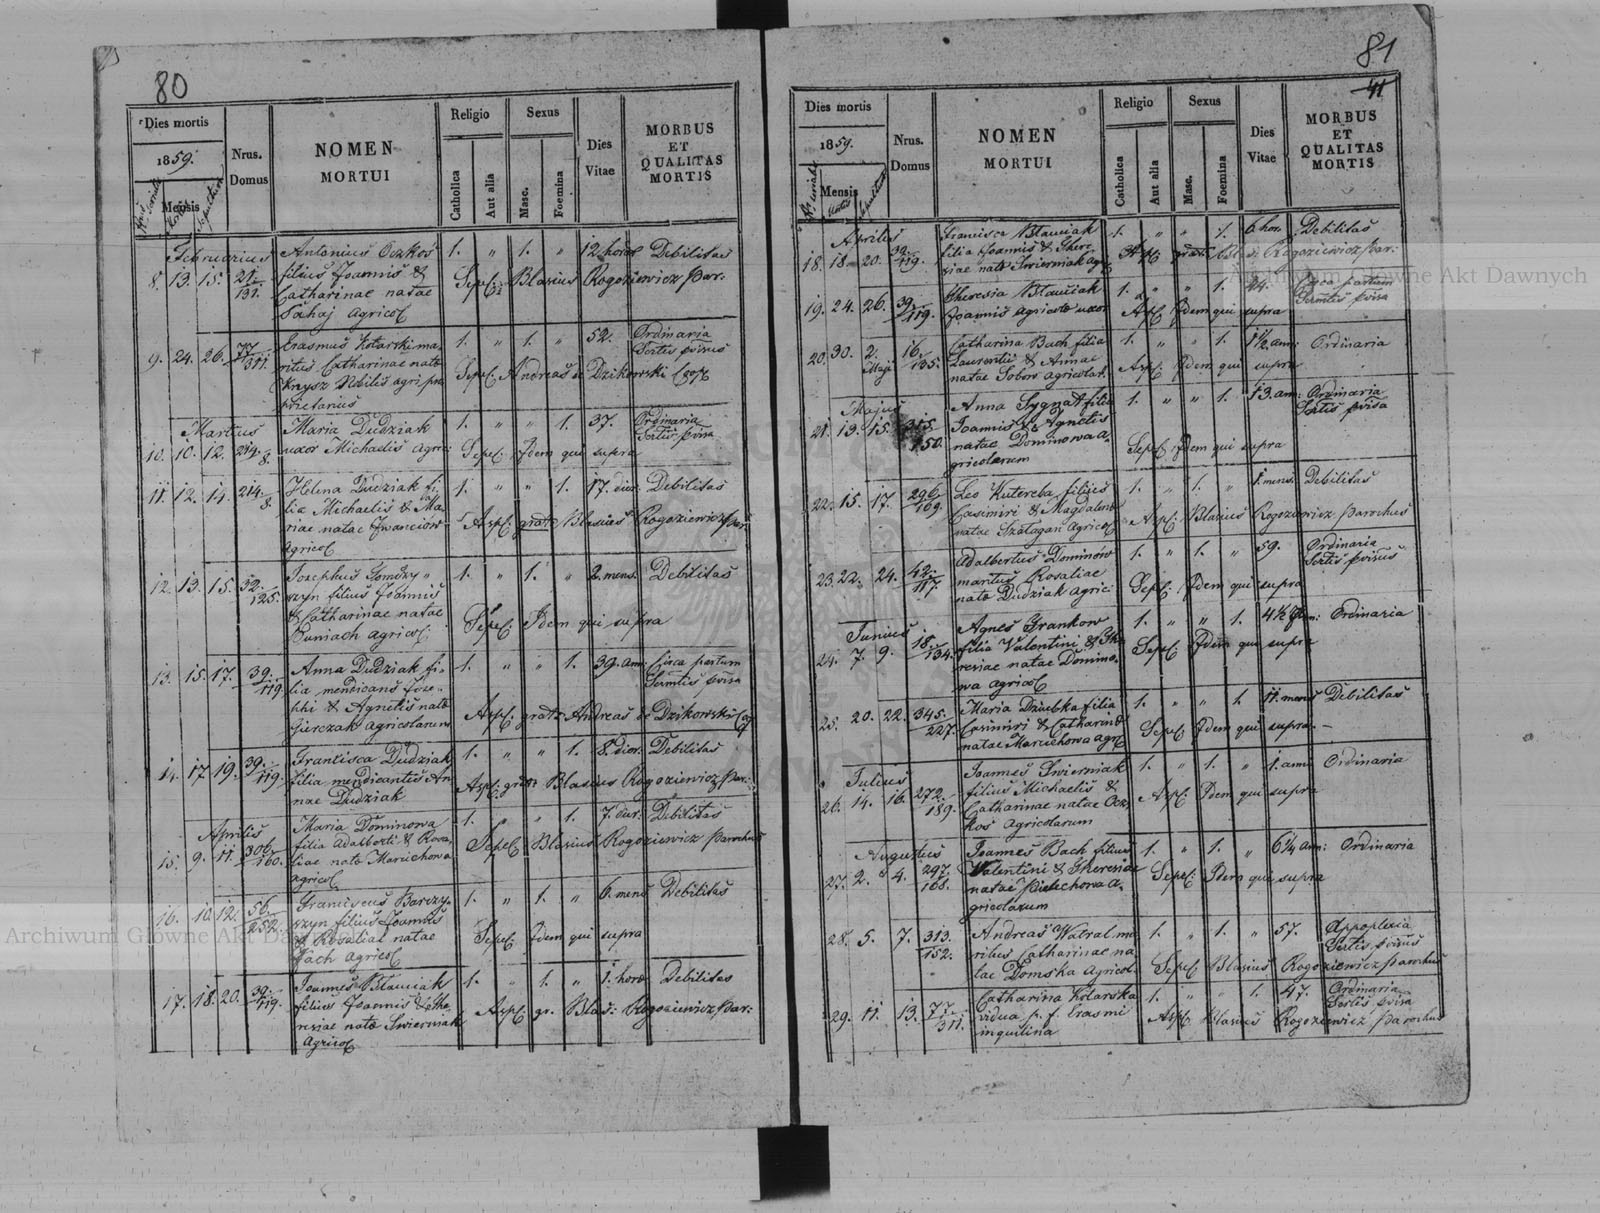 80
Dies mortis
1859.
Mensis
Nrus.
Domus
NOMEN
MORTUI
Religio
Catholica
Aut alia
Sexus
Masc.
Foemina
Dies
Vitae
MORBUS
ET
QUALITAS
MORTIS
Februarius
8. 13. 15. 21/131. Antonius Oczkoś 1. " 1. " 12 horae Debilitas
filius Joannis &
Catharinae natae
Sahaj Agricol
Sepel: Blasius Rogoziewicz Par:
9. 24. 26. 77/311. Erasmus Kotarski ma- 1. " 1. " 52. Ordinaria
ritus Catharinae nata Sortis provisus
Knysz Nobilis agri pro
prietarius
Sepel: Andreas de Dzikowski Coop
Martius
10. 10. 12. 214./8. Maria Dudziak 1. " " 1. 37. Ordinaria
uxor Michaelis Agric: Sortis provisa
Sepel: Idem qui supra
11. 12. 14. 214./8. Helena Dudziak fi- 1. " " 1. 17. dier. Debilitas
lia Michaelis & Ma-
riae natae Iwanciow
Agricol
Aspel: gratis Blasius Rogoziewicz Par:
12. 13. 15. 32./125. Josephus 1. " 1. " 2. mens. Debilitas
szyn filius Joannis
& Catharinae natae
Puniach Agricol:
Sepel: Idem qui supra
13. 15. 17. 39./119. Anna Dudziak fi- 1. " " 1. 39. ann. Circa partum
lia mendicans Jose- Sermtis provisa
phi & Agnetis nata
Gurczak Agricolarum
Aspel: gratis Andreas de Dzikowski Coop
14. 17. 19. 39./119. Francisca Dudziak 1. " " 1. 8. dier. Debilitas
filia mendicantis An-
nae Dudziak
Aspel: gratis Blasius Rogoziewicz Par:
Aprilis
15. 9. 11. 306./160. Maria Dominowa 1. " " 1. 7. dier. Debilitas
filia Adalberti & Rosa-
liae nata Marcichowa
Agricol
Sepel: Blasius Rogoziewicz Parochus
16. 10. 12. 56./252. Franciscus Barszy- 1. " 1. " 6. mens Debilitas
szyn filius Joannis
& Rosaliae natae
Pach Agricol
Sepel: Idem qui supra
17. 18. 20. 39./119. Joannes Blawiak 1. " 1. " 1. hora Debilitas
filius Joannis & The-
resiae nata Swierniak
Agricol
Aspel: gr. Blas: Rogoziewicz Par:
81
41
Dies mortis
1859.
Mensis
Nrus.
Domus
NOMEN
MORTUI
Religio
Catholica
Aut alia
Sexus
Masc.
Foemina
Dies
Vitae
MORBUS
ET
QUALITAS
MORTIS
Aprilis
18. 18. 20. 39./119. Francisca Blawiak 1. " " 1. 6 hor. Debilitas
filia Joannis & There-
siae nata Swierniak Agr
Aspel: gratis Blasi: Rogoziewicz Par:
19. 24. 26. 39./119. Theresia Blawiak 1. " " 1. 24. Circa partum
Joannis agricola uxor Sermtis provisa
Aspel: Idem qui supra
20. 30. 2. Maji 16./135. Catharina Bach filia 1. " " 1. 1½ ann: Ordinaria
Laurentii & Annae
natae Sobow Agricolar.
Aspel: Idem qui supra
Majus
21. 13. 15. 315./150. Anna Sygnat filia 1. " " 1. 13. ann: Ordinaria
Joannis & Agnetis Sortis provisa
natae Dominowa A-
gricolarum
Sepel: Idem qui supra
22. 15. 17. 296./169. Leo Kutereba filius 1. " 1. " 1. mens. Debilitas
Casimiri & Magdalena
natae Szalagan Agricol
Aspel: Blasius Rogoziewicz Parochus
23. 22. 24. 42./117. Adalbertus Dominow 1. " 1. " 59. Ordinaria
maritus Rosaliae Sortis provisus
nata Dudziak Agric:
Sepel: Idem qui supra
Junius
24. 7. 9. 18./134. Agnes Frankow 1. " " 1. 4½ ann: Ordinaria
filia Valentini & The-
resiae natae Domino-
wa Agricol
Sepel: Idem qui supra
25. 20. 22. 345./227. Maria Dziubka filia 1. " " 1. 11. mens Debilitas
Casimiri & Catharina
natae Marcichowa Agr
Sepel: Idem qui supra
Julius
26. 14. 16. 272./189. Joannes Swierniak 1. " 1. " 1. ann: Ordinaria
filius Michaelis &
Catharinae natae Ocz-
koś Agricolarum
Aspel: Idem qui supra
Augustus
27. 2. 4. 297./168. Joannes Bach filius 1. " 1. " 6¼ ann: Ordinaria
Valentini & Theresiae
natae Pielechowa A-
gricolarum
Sepel: Idem qui supra
28. 5. 7. 313./152. Andreas Watral ma- 1. " 1. " 57. Appoplexia
ritus Catharinae na- Sortis provisus
tae Domska Agricol.
Sepel: Blasius Rogoziewicz Parochus
29. 11. 13. 77./311. Catharina Kotarska 1. " " 1. 47. Ordinaria
vidua p. f. Erasmi Sortis provisa
inquilina
Aspel: Blasius Rogoziewicz Parochus
Archiwum Główne Akt Dawnych
Archiwum Główne Akt Dawnych